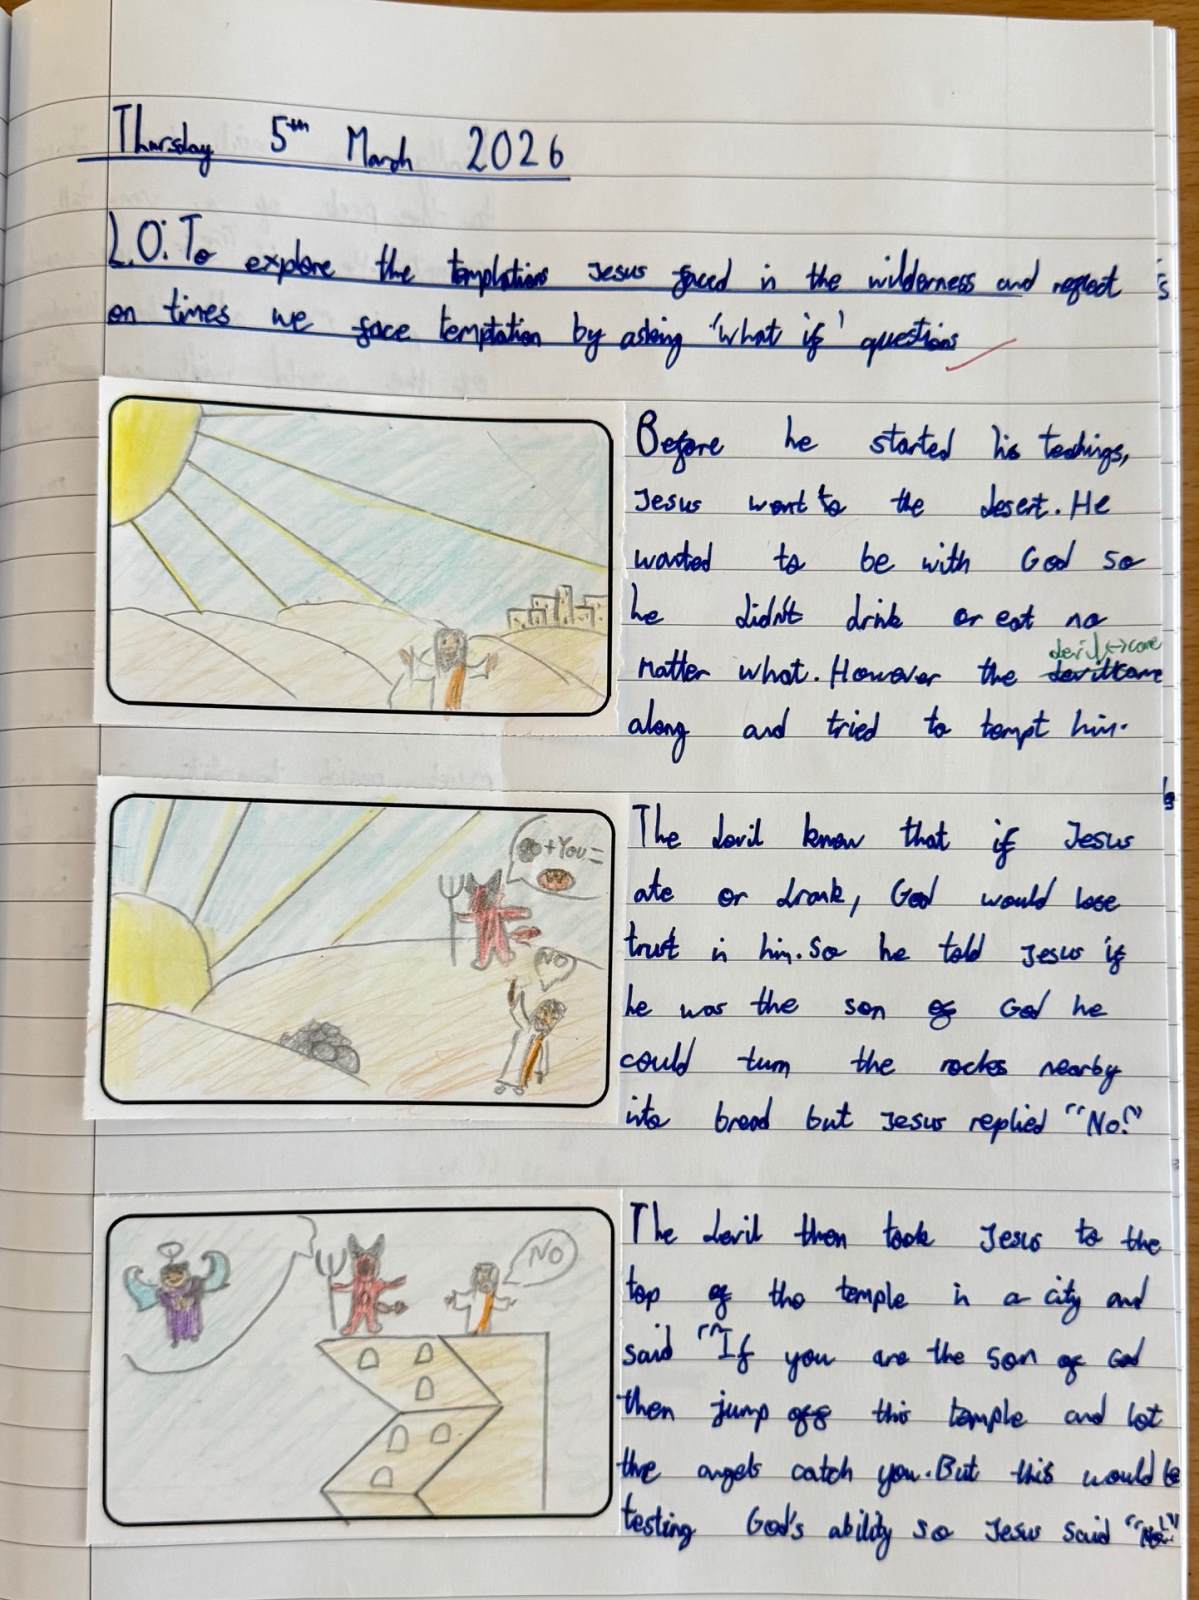 Thursday 5th March 2026
L.O: To explore the temptations Jesus faced in the wilderness and reflect
on times we face temptation by asking 'what if' questions
Before he started his teachings,
Jesus went to the desert. He
wanted to be with God so
he didn't drink or eat no
devil↔came
matter what. However the devilcame
along and tried to tempt him.
The devil knew that if Jesus
ate or drank, God would lose
trust in him. So he told Jesus if
he was the son of God he
could turn the rocks nearby
into bread but Jesus replied "No!"
+You=
NO
The devil then took Jesus to the
top of the temple in a city and
said "If you are the son of God
then jump off this temple and let
the angels catch you. But this would be
testing God's ability so Jesus said "No!"
NO